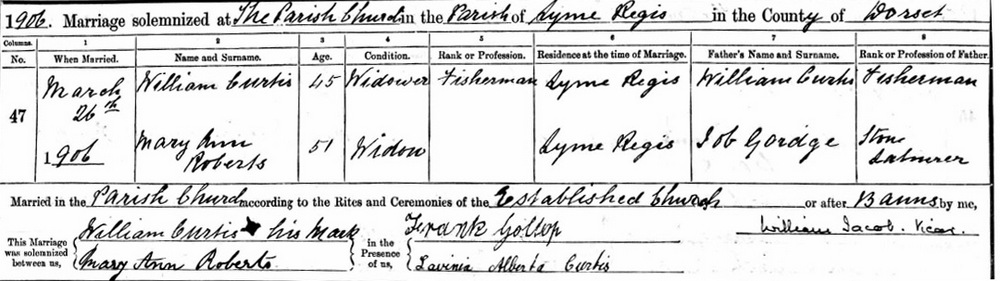 1906. Marriage solemnized at The Parish Church in the Parish of Lyme Regis in the County of Dorset
Columns. 1 2 3 4 5 6 7 8
No. When Married. Name and Surname. Age. Condition. Rank or Profession. Residence at the time of Marriage. Father's Name and Surname. Rank or Profession of Father.
47 March 26th 1906 William Curtis 45 Widower Fisherman Lyme Regis William Curtis Fisherman
Mary Ann Roberts 51 Widow Lyme Regis Job Gordge Stone Labourer
Married in the Parish Church according to the Rites and Ceremonies of the Established Church or after Banns by me,
William Jacob. Vicar.
This Marriage was solemnized between us, William Curtis his Mark
Mary Ann Roberts
in the Presence of us, Frank Gollop
Lavinia Alberta Curtis